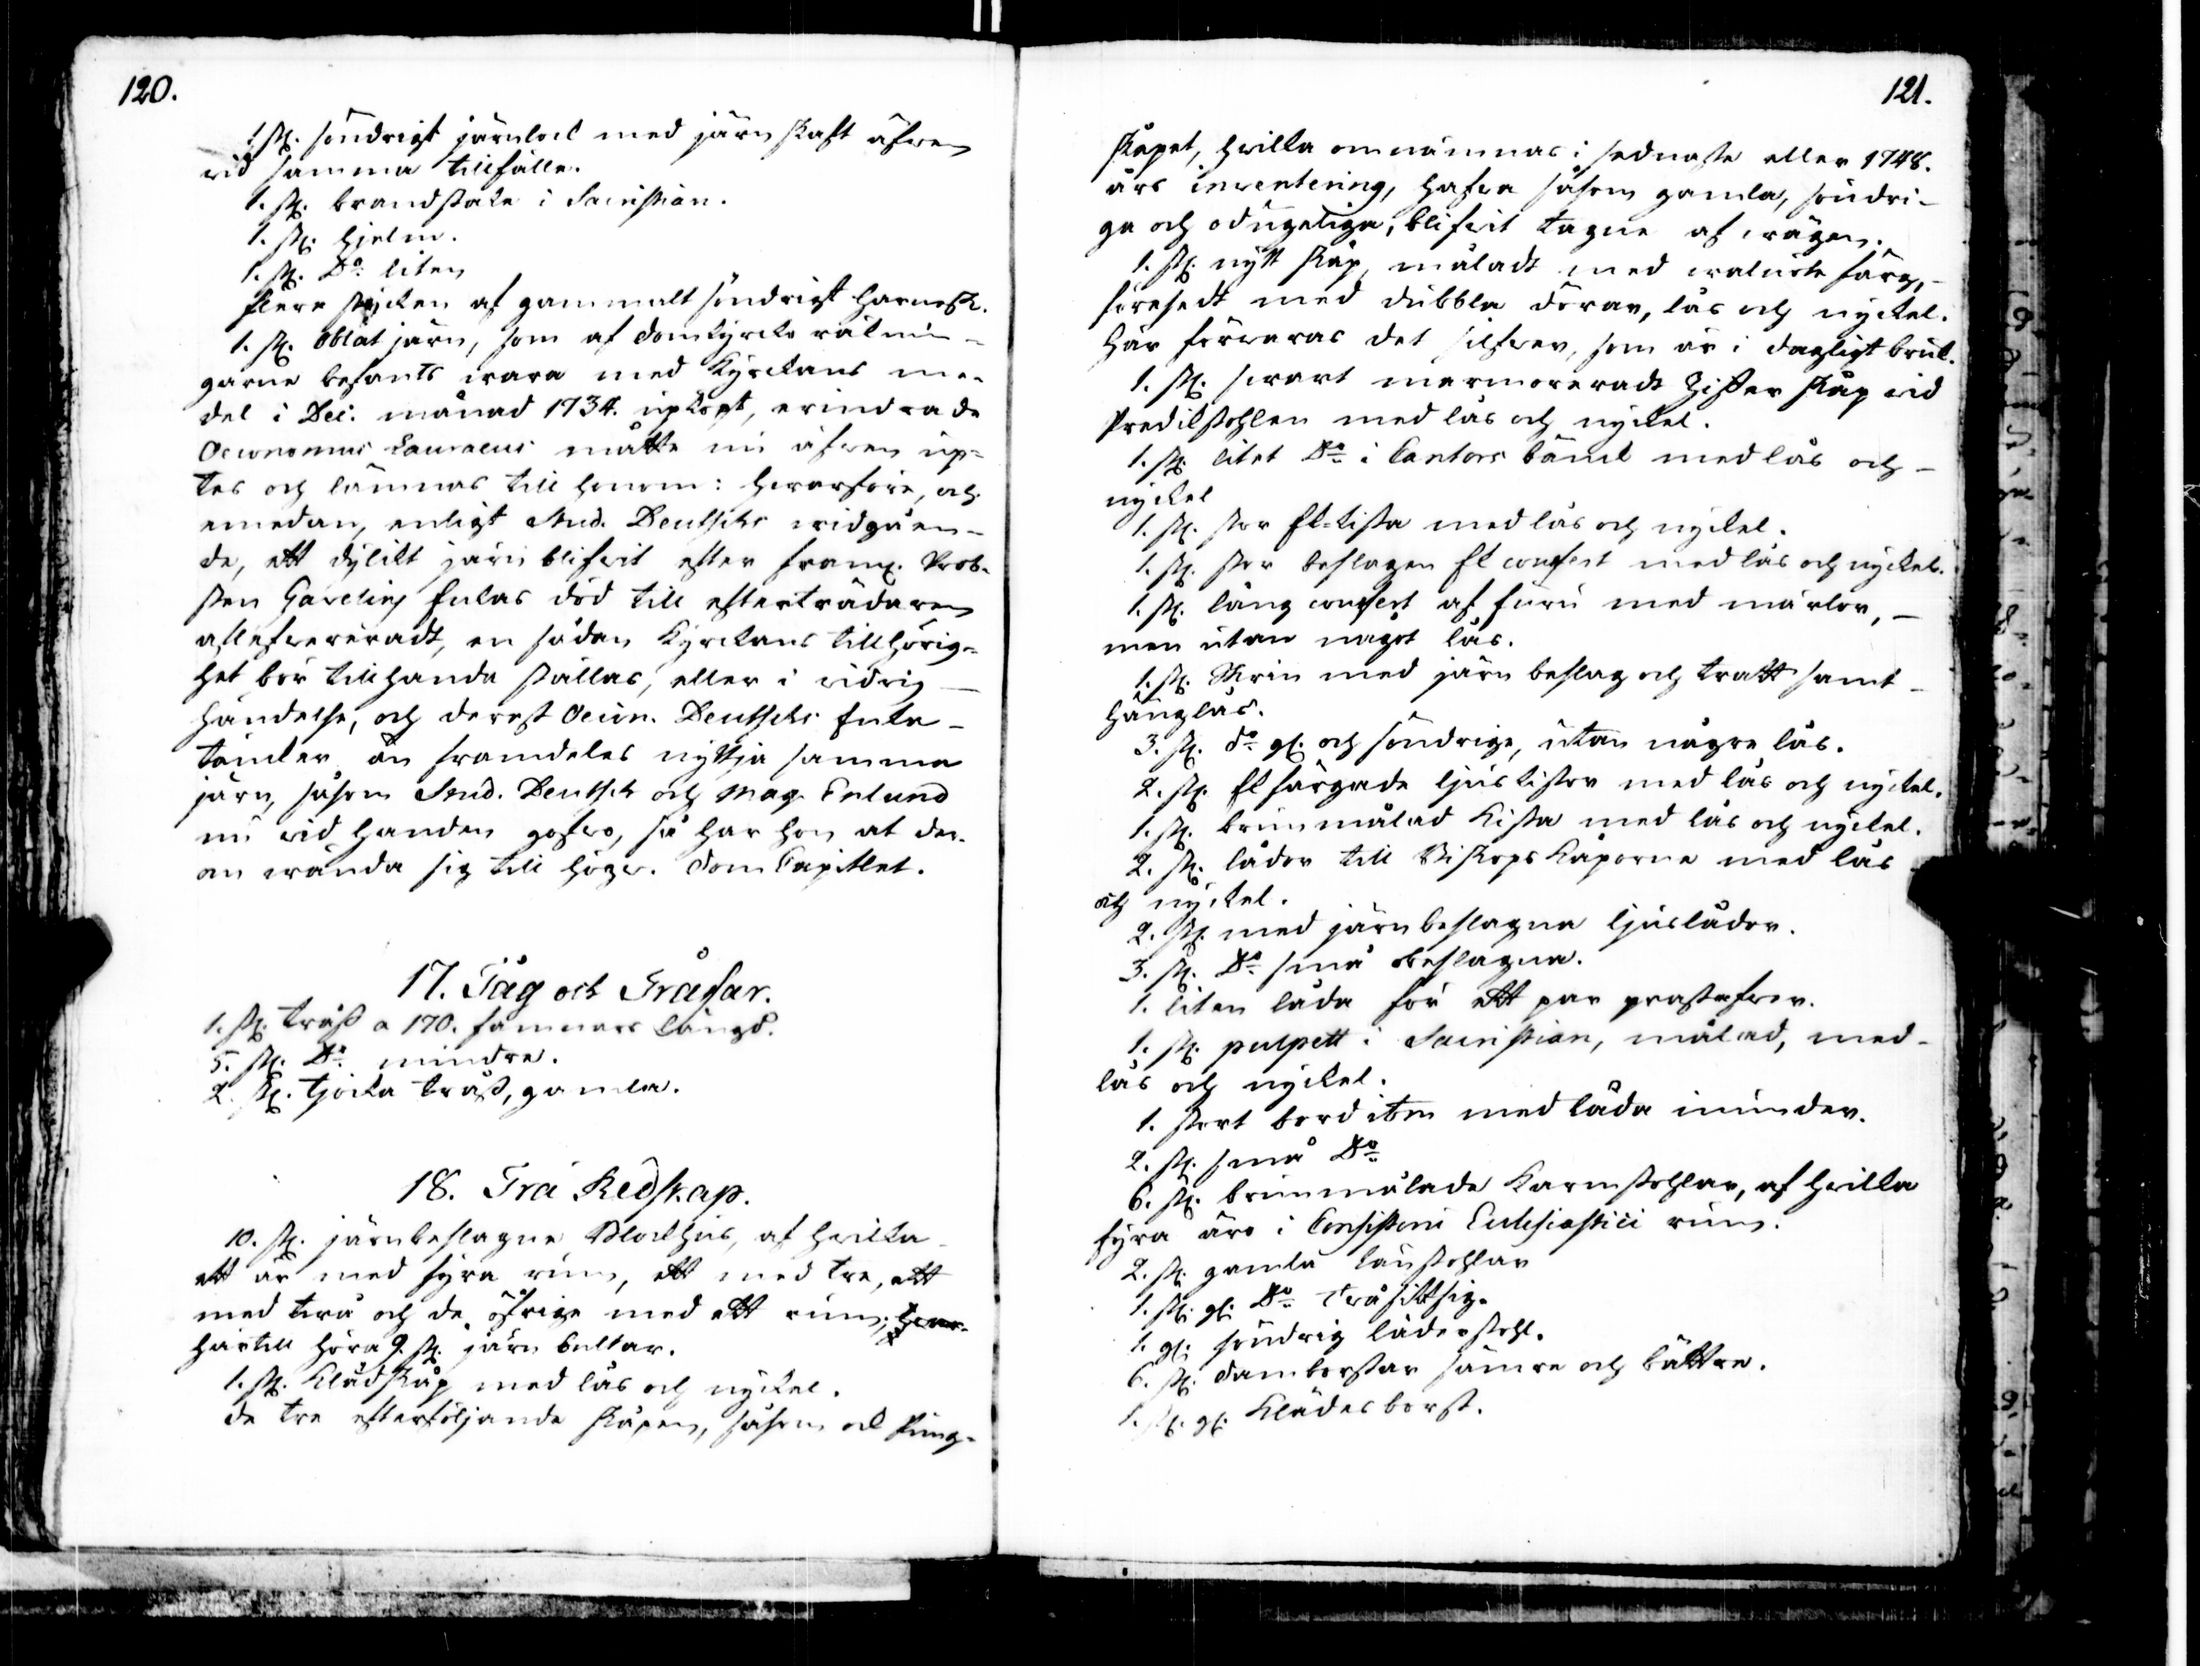 120.
1 st. söndrigt järnlod med järn skaft äfwen
wid samma tillfälle.
1. st. brandstake i Sacristian.
1. st. hjelm.
1. st. Do liten
flere stycken af gammalt söndrigt harnesk.
1. st. oblat järn, som af Domkyrko räknin-
garne befants wara med Kyrckans me-
del i Dec. månad 1734. upköpt, erindrade
Oeconomus Lauraeus måtte nu äfwen up-
tes och lämnas till honom: hwarföre, och
emedan, enligt Stud. Deutschs widgåen-
de, ett dylikt järn blifwit efter framl. Prob-
sten Gavelins Enkas död till efterträdaren
aflefwereradt, en sådan Kyrckans tillhörig-
het bör tillhanda ställas, eller i widrig
händelse, och derest Oecon. Deutschs Enka
täncker än framdeles nyttja samma
järn, såsom Stud. Deutsch och Mag. Enlund
nu wid handen gofwo, så har hon at der-
om wända sig till högw. Dom Capitlet.
17. Tåg och Tråssar.
1. st. tråss a 170. famnars längd.
5. st. Do mindre.
2. st. tjocka tråss, gamla.
18. Trä Redskap.
10. st. järnbeslagne Blockhus, af hwilka
ett är med fyra rum, ett med tre, ett
med twå och de öfrige med ett rum;
härtill höra 9. st. järn bultar.
1. st. Klädskåp med lås och nyckel.
de tre efterföljande skåpen, såsom ock Pung-
121.
skåpet, hwilka omnämnas i sednaste eller 1748.
års inwentering, hafwa såsom gamla, söndri-
ga och odugeliga, blifwit tagne af wägen.
1. st. nytt skåp, måladt med walnöts färg,
försedt med dubbla dörar, lås och nyckel.
här förwaras det silfwer, som är i dagligt bruk.
1. st. swart marmoreradt Ziffer skåp wid
Predikstohlen med lås och nyckel.
1. st. litet Do i Cantors bänck med lås och
nyckel
1. st. stor Ek-kista med lås och nyckel.
1. st. stor beslagen Ek couffert med lås och nyckel.
1. st. lång couffert af furu med märlor,
men utan något lås.
1. st. Skrin med järn beslag och tratt samt
hänglås.
3. st. do gl. och söndrige, utan någre lås.
2. st. Ekfärgade ljuskistor med lås och nyckel.
1. st. brunmålad Kista med lås och nyckel.
2. st. lådor till Biskops Kåporne med lås
och nyckel.
2. st. med järn beslagna ljuslådor.
3. st. Do små obeslagna.
1. liten låda för ett par
1. st. pulpett i Sacristian, målad, med
lås och nyckel.
1. stort bord item med låda inunder.
2. st. små Do
6. st. brunmålade Karmstohlar, af hwilka
fyra äro i Consistorii Ecclesiastici rum.
2. st. gamla länstohlar
1. st. gl. Do twåsittsig.
1. gl. söndrig läderstohl.
6. st. damborstar sämre och bättre.
1. st. gl. Klädesborst.